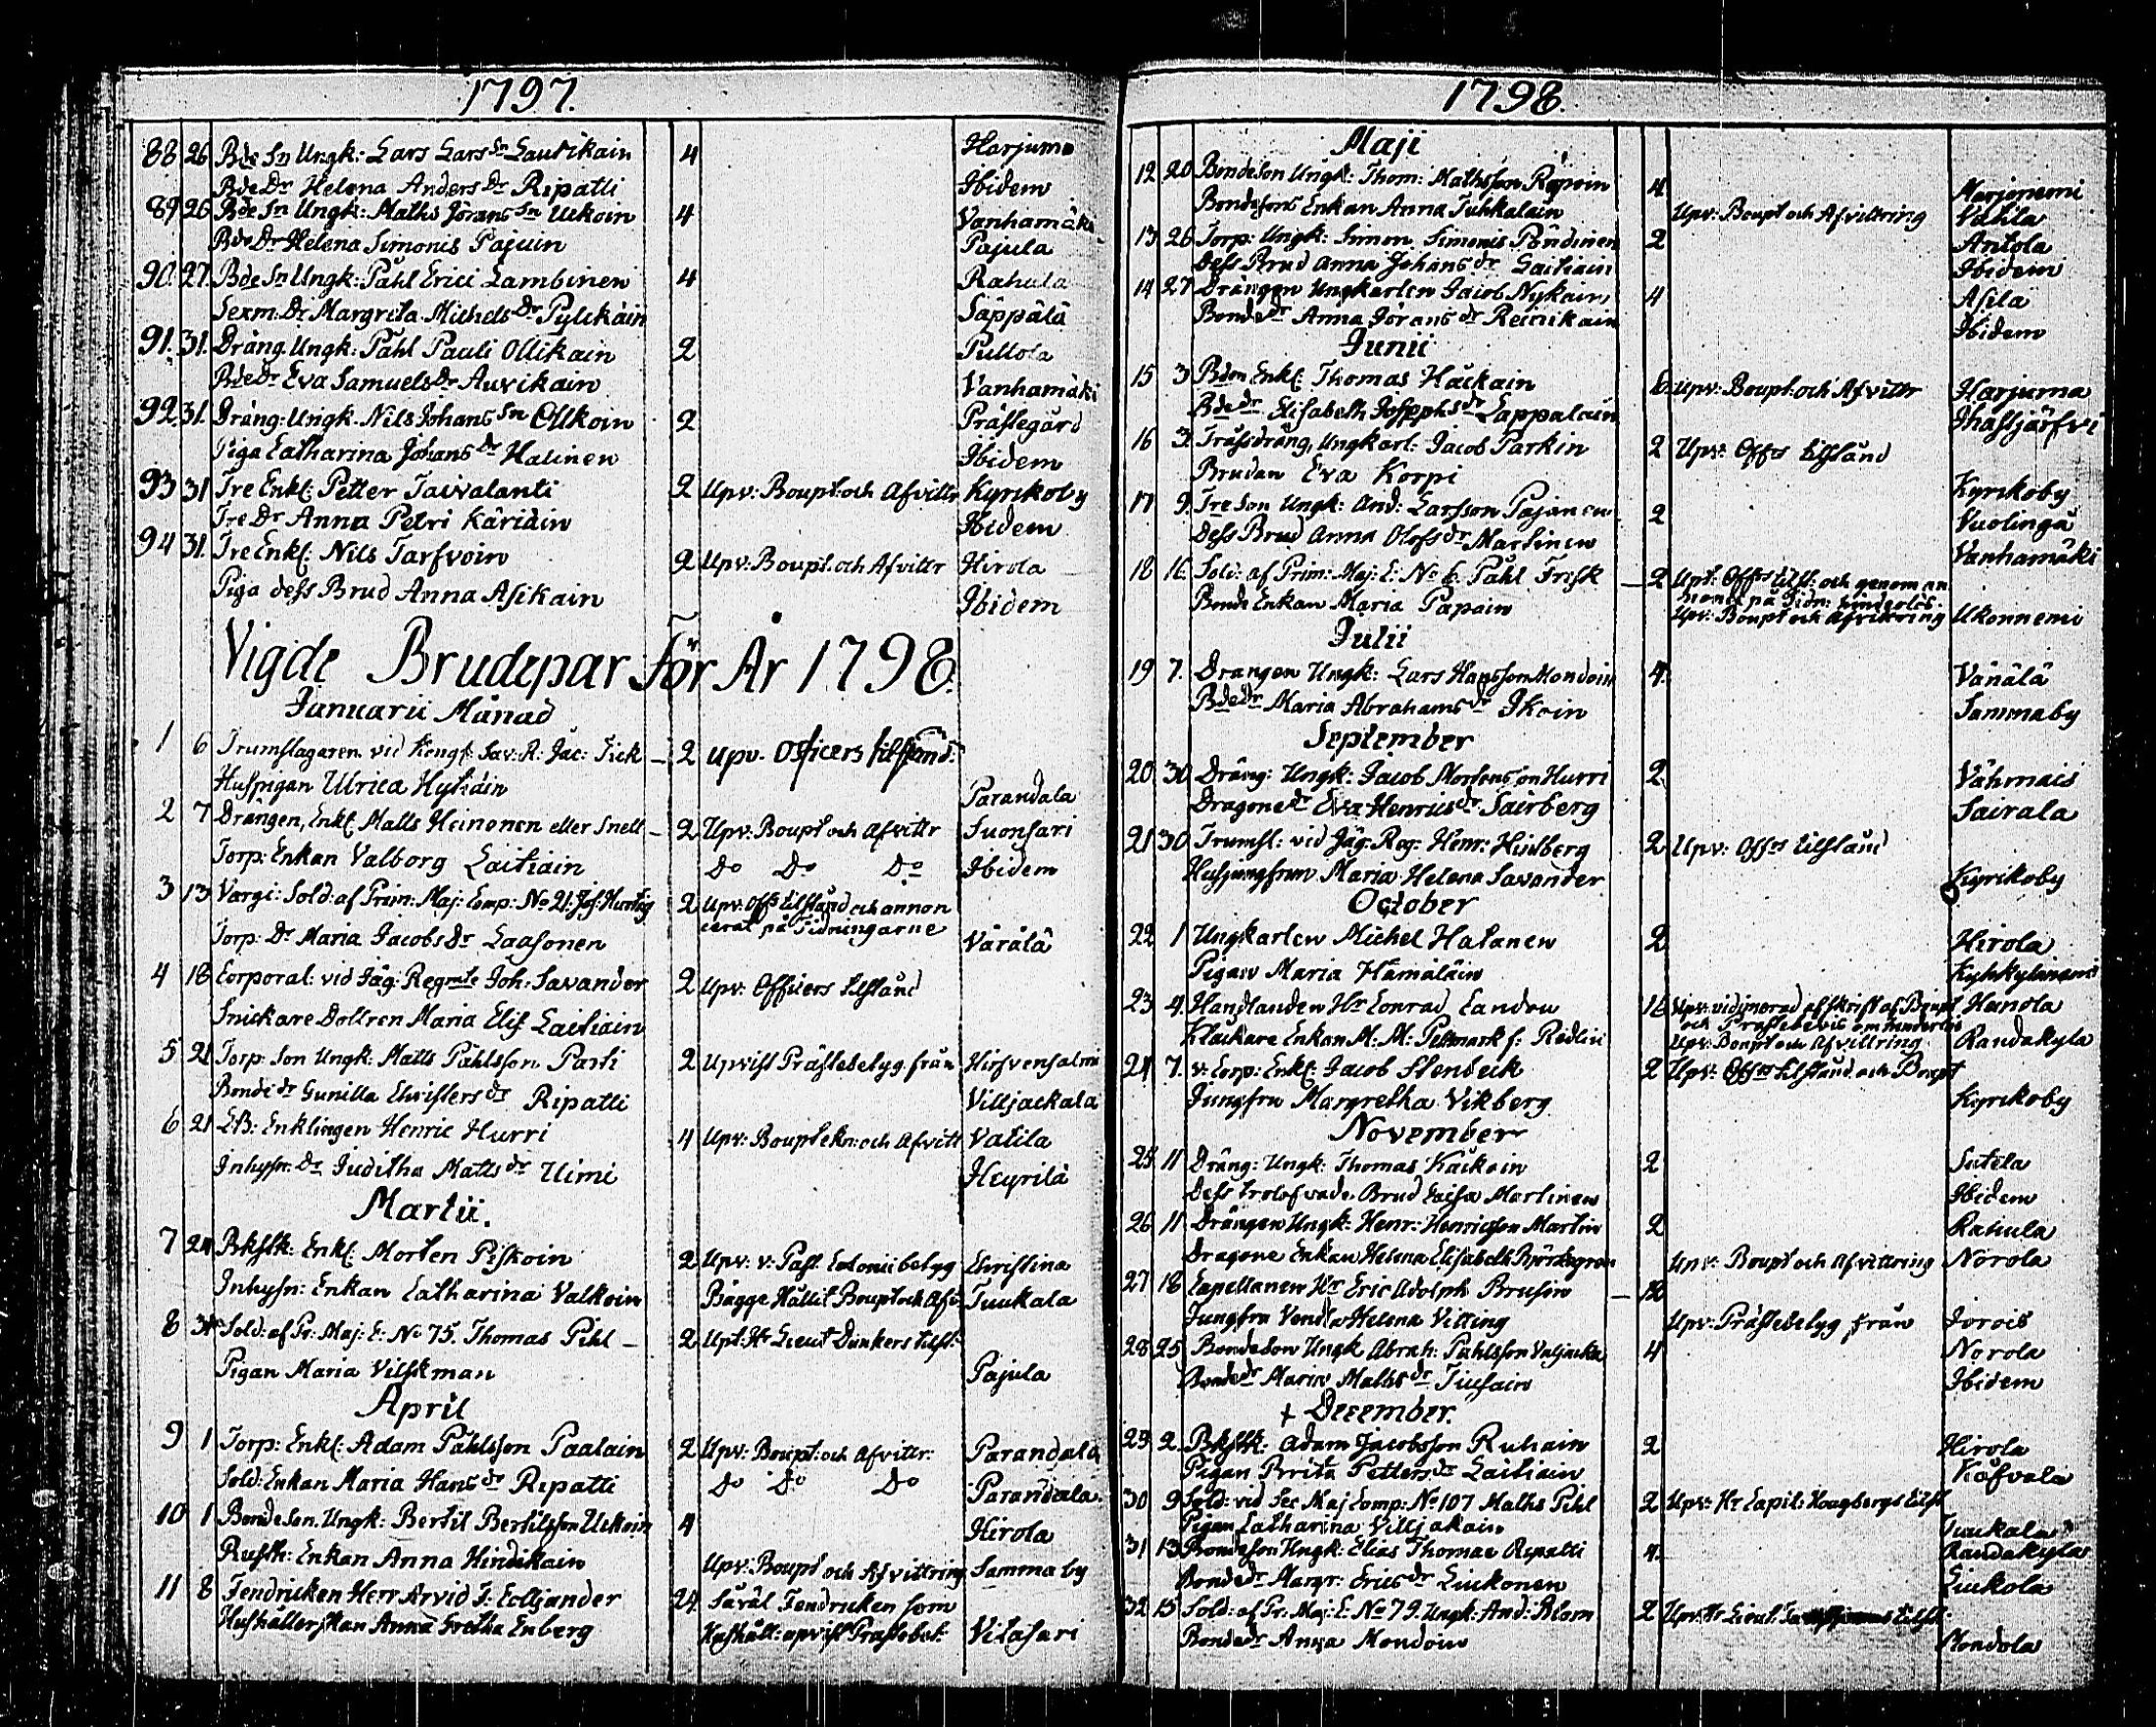 1797.
88 26 Bde Sn Ungk: Lars Lars Sn Lautikain 4 Harjuma
Bde Dr Helena Anders Dr Ripatti Ibidem
89 26 Bde Sn Ungk: Maths Jörans Sn Uckoin 4 Vanhamäki
Bde Dr Helena Simonis Pajuin Pajula
90. 27. Bde Sn Ungk: Påhl Erici Lambinen 4 Rahula
Sexm: Dr Margreta Michels Dr Pylckäin Säppälä
91. 31. Dräng. Ungk: Påhl Pauli Ollikain 2 Pullola
Bde Dr Eva Samuels Dr Auvikain Vanhamäki
92. 31. Dräng: Ungk. Nils Johans Sn Ollkoin 2 Prästegård
Piga Catharina Johans Dr Halinen Ibidem
93 31 Tre Enkl: Petter Taivalanti 2 Upv: Boupt: och Afvittr Kyrikoby
Tre Dr Anna Petri Käriäin Ibidem
94 31. Tre Enkl: Nils Tarfvoin 2 Upv: Boupt. och Afvittr Hirola
Piga dess Brud Anna Asikain Ibidem
Vigde Brudepar För År 1798.
Januarii Månad
1 6 Trumslagaren vid Kongl: Sav: R: Jac: Fick 2 Upv. Officers tilstånd:
Huspigan Ulrica Hytiäin Parandala
2 7 Drängen, Enkl: Matts Heinonen eller Snell 2 Upv: Boupt och Afvittr Suonsari
Torp: Enkan Valborg Laitiain Do Do Do Ibidem
3 13 Vargi: Sold: af Prim: Maj: Comp: No 21: Joh: Hurtig 2 Upv: Offrs tilstånd och annon
cerat på Tidningarne
Torp: Dr Maria Jacobs Dr Laasonen Värälä
4 18 Corporal: vid Jäg: Regmte Joh: Savander 2 Upv: Officers tilstånd
Snickare Dottren Maria Elis Laitiain
5 21 Torp: Son Ungk: Matts Påhlsson Parti 2 Upvist Prästebetyg från Hirfvensalmi
Bonde dr Gunilla Christers dr Ripatti Villjackala
6 21 Enklingen Henric Hurri 4 Upv: Boupteckn: och Afvitt Vatila
Inhysn: Dr Juditha Matts dr Uimi Heyrilä
Martii.
7 24 Bkslk: Enkl: Morten Piskoin 2 Upv: v: Past. Colonii betyg Christina
Inhysn: Enkan Catharina Valkoin Bägge Hållit Boupt och Afv: Tuukala
8 31 Sold: af Pr: Maj: C: No 75. Thomas Pihl 2 Upt: Hr Lieut Dunkers tilst:
Pigan Maria Vilskman Pajula
April
9 1 Torp: Enkl: Adam Påhlsson Paalain 2 Upv: Boupt: och Afvittr: Parandala
Sold: Enkan Maria Hans dr Ripatti Do Do Do Parandala
10 1 Bonde Son. Ungk: Bertil Bertilsson Uckoin 4 Hirola
Rusth: Enkan Anna Hindikain Upv: Boupt och Afvittring Sammaby
11 8 Fendricken Herr Arvid F: Colljander 24 Såväl Fendricken som
Hushållerskan Anna Gretha Enberg Hushåll: upvist Prästebet: Vitasari
1798.
Maji
12 20 Bondeson Ungk: Thom: Mathsson Ropoin 4 Marjoniemi
Bondesons Enkan Anna Tuhkalain Upv: Boupt och Afvittring Vatila
13 26 Torp: Ungk: Simon Simonis Pöndinen 2 Antola
Dess Brud Anna Johans dr Laitiain Ibidem
14 27 Drängen Ungkarlen Jacob Nykain 4 Asila
Bonde dr Anna Jörans dr Reinikain Ibidem
Junii
15 3 Bden Enkl: Thomas Häckain 6 Upv: Boupt: och Afvittr Harjuma
Bde dr Elisabeth Josephs dr Lappalain
16 3. Trässdräng, Ungkarl: Jacob Parkin 2 Upv: Offrs tilstånd
Brudan Eva Korpi Kyrikoby
17 9. Tre Son Ungk: And: Larsson Pajanen 2 Vuolinga
Dess Brud Anna Olofs dr Martinen Vanhamäki
18 16. Sold: af Prim: Maj: C: No 6. Påhl Frisk 2 Upt: Offrs tilst: och genom an
nonce på Tidn: hinderlös:
Bonde Enkan Maria Papain Upv: Boupt och Afvittring Ukonnemi
Julii
19 7. Drängen Ungk: Lars Hansson Mondoin 4. Vänälä
Bde dr Maria Abrahams dr Ikoin Sammaby
September
20 30 Dräng: Ungk: Jacob Mortensson Hurri 2 Vähmais
Dragone dr Eva Henrics dr Sairberg Sairala
21 30 Trumsl: vid Jäg: Reg: Henr: Hindberg 2 Upv: Offrs tilstånd
Husjungfrun Maria Helena Savander Kyrikoby
October
22 1 Ungkarlen Michel Hatanen 2 Hirola
Pigan Maria Hämäläin
23 4. Handlanden Hr Conrad Candou 16 Upv: vidimerad afskrift af Boupt Heinola
och Prästebevis om hinderlös
Klåckare Enkan M: M: Pellmark f: Redlin Upv: Boupt och Afvittring Randakyla
24 7. v: Corp: Enkl: Jacob Stenbeck 2 Upv: Offrs tilstånd och Boupt
Jungfru Margretha Vikberg Kyrikoby
November
25 11 Dräng: Ungk: Thomas Käckain 2 Sutela
Dess trolofvade Brud Caisa Martinen Ibidem
26 11 Drängen Ungk: Henr: Henricsson Martin 2 Rahula
Dragone Enkan Helena Elisabeth Björckgren Upv: Boupt och Afvittring Norola
27 18 Capellanen Hr Eric Adolph Brusin
Jungfru Vendla Helena Vitting Upv: Prästebetyg från Jorois
28 25 Bondeson Ungk Abrah: Påhlsson Viljacka 4 Norola
Bonde dr Maria Maths dr Tiusain Ibidem
December.
29 2. Bkslk: Adam Jacobsson Ruhain 2 Hirola
Pigan Brita Petters dr Laitiain
30 9 Sold: vid Sec Maj Comp: No 107 Maths Pihl 2 Upv: Hr Capit: Hougbergs tilst
Pigan Catharina Villjakain Tuukala
31 13 Bondeson Ungk: Elias Thomae Ripatti 4. Randakyla
Bonde dr Margr: Erics dr Liukonen Liukola
32 15 Sold: af Pr: Maj: C: No 79. Ungk: And: Blom 2 Upv: Hr Lieut: tilst:
Bonde dr Anna Mondoin Mondola